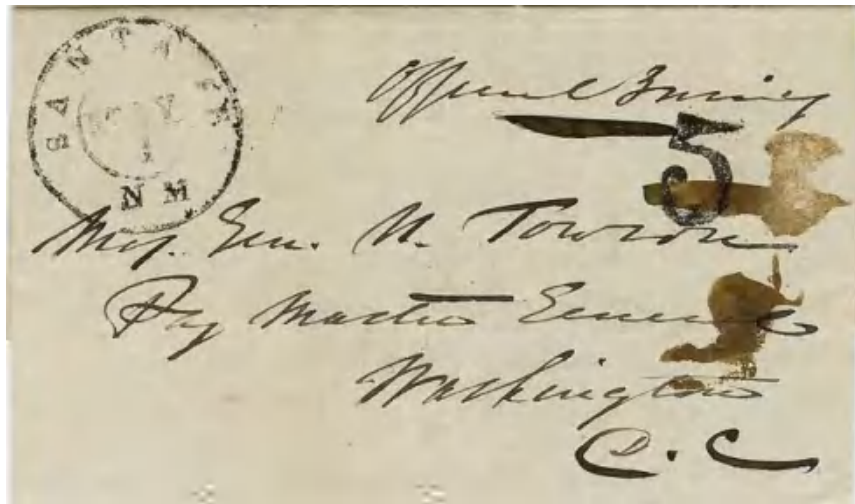 SANTA FE
NOV
1
N M
Official Business
5
Maj. Gen. N. Towson
Pay Master General
Washington
D. C